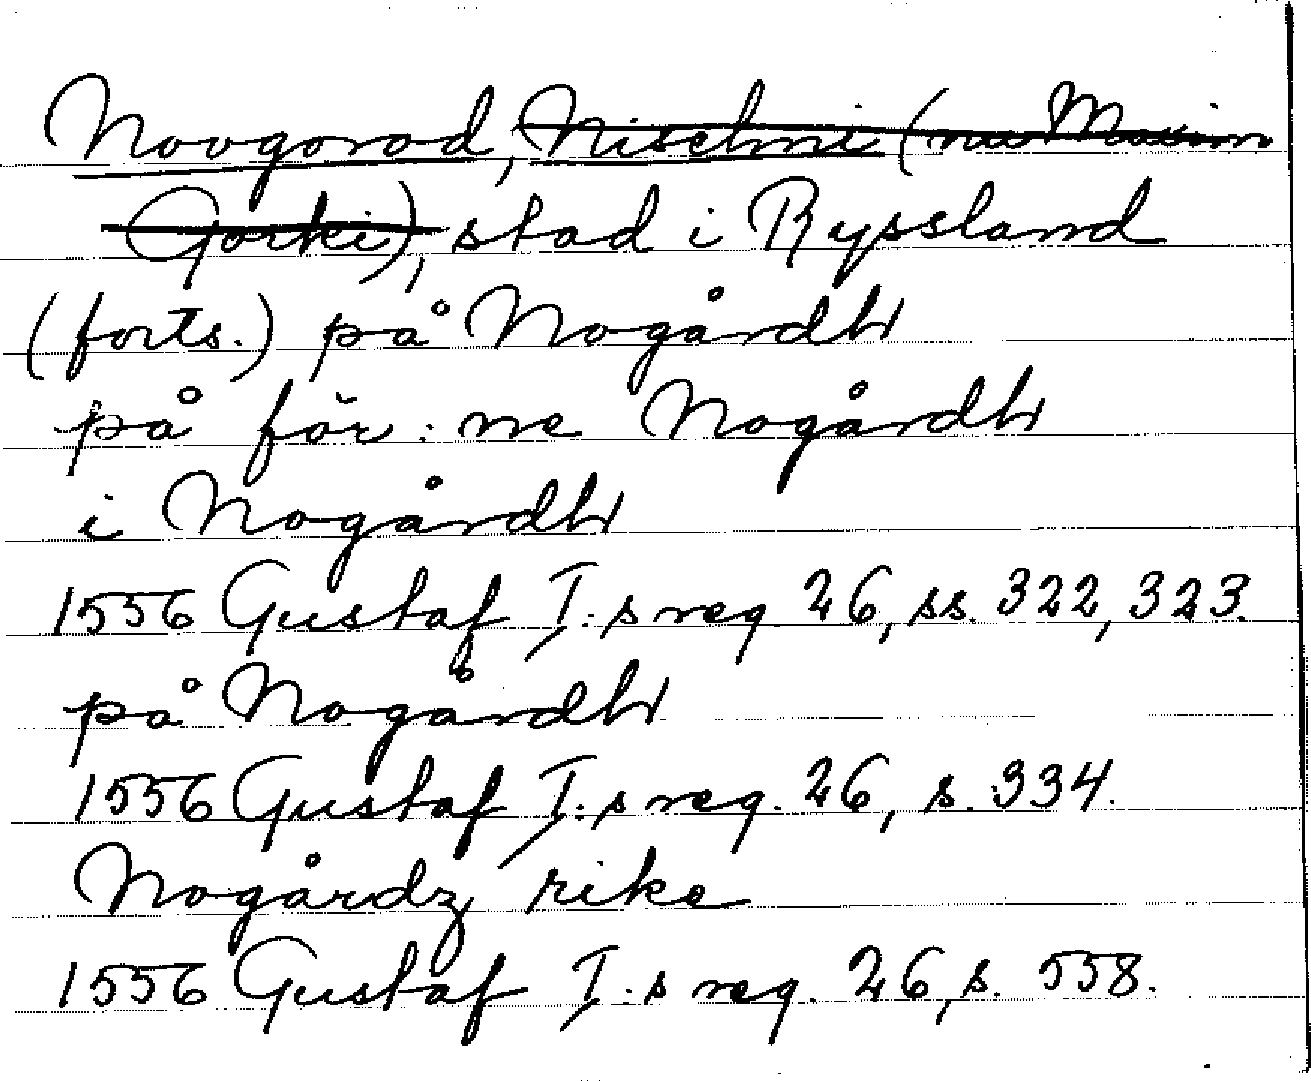 Novgorod, Nischni (nu Maxim
Gorki), stad i Ryssland
(forts.) på Nogårdh
på för: ne Nogårdh
i Nogårdh
1556 Gustaf I:s reg 26, ss. 322, 323.
på Nogårdh
1556 Gustaf I:s reg. 26, s. 334.
Nogårdz rike
1556 Gustaf I:s reg. 26, s. 558.